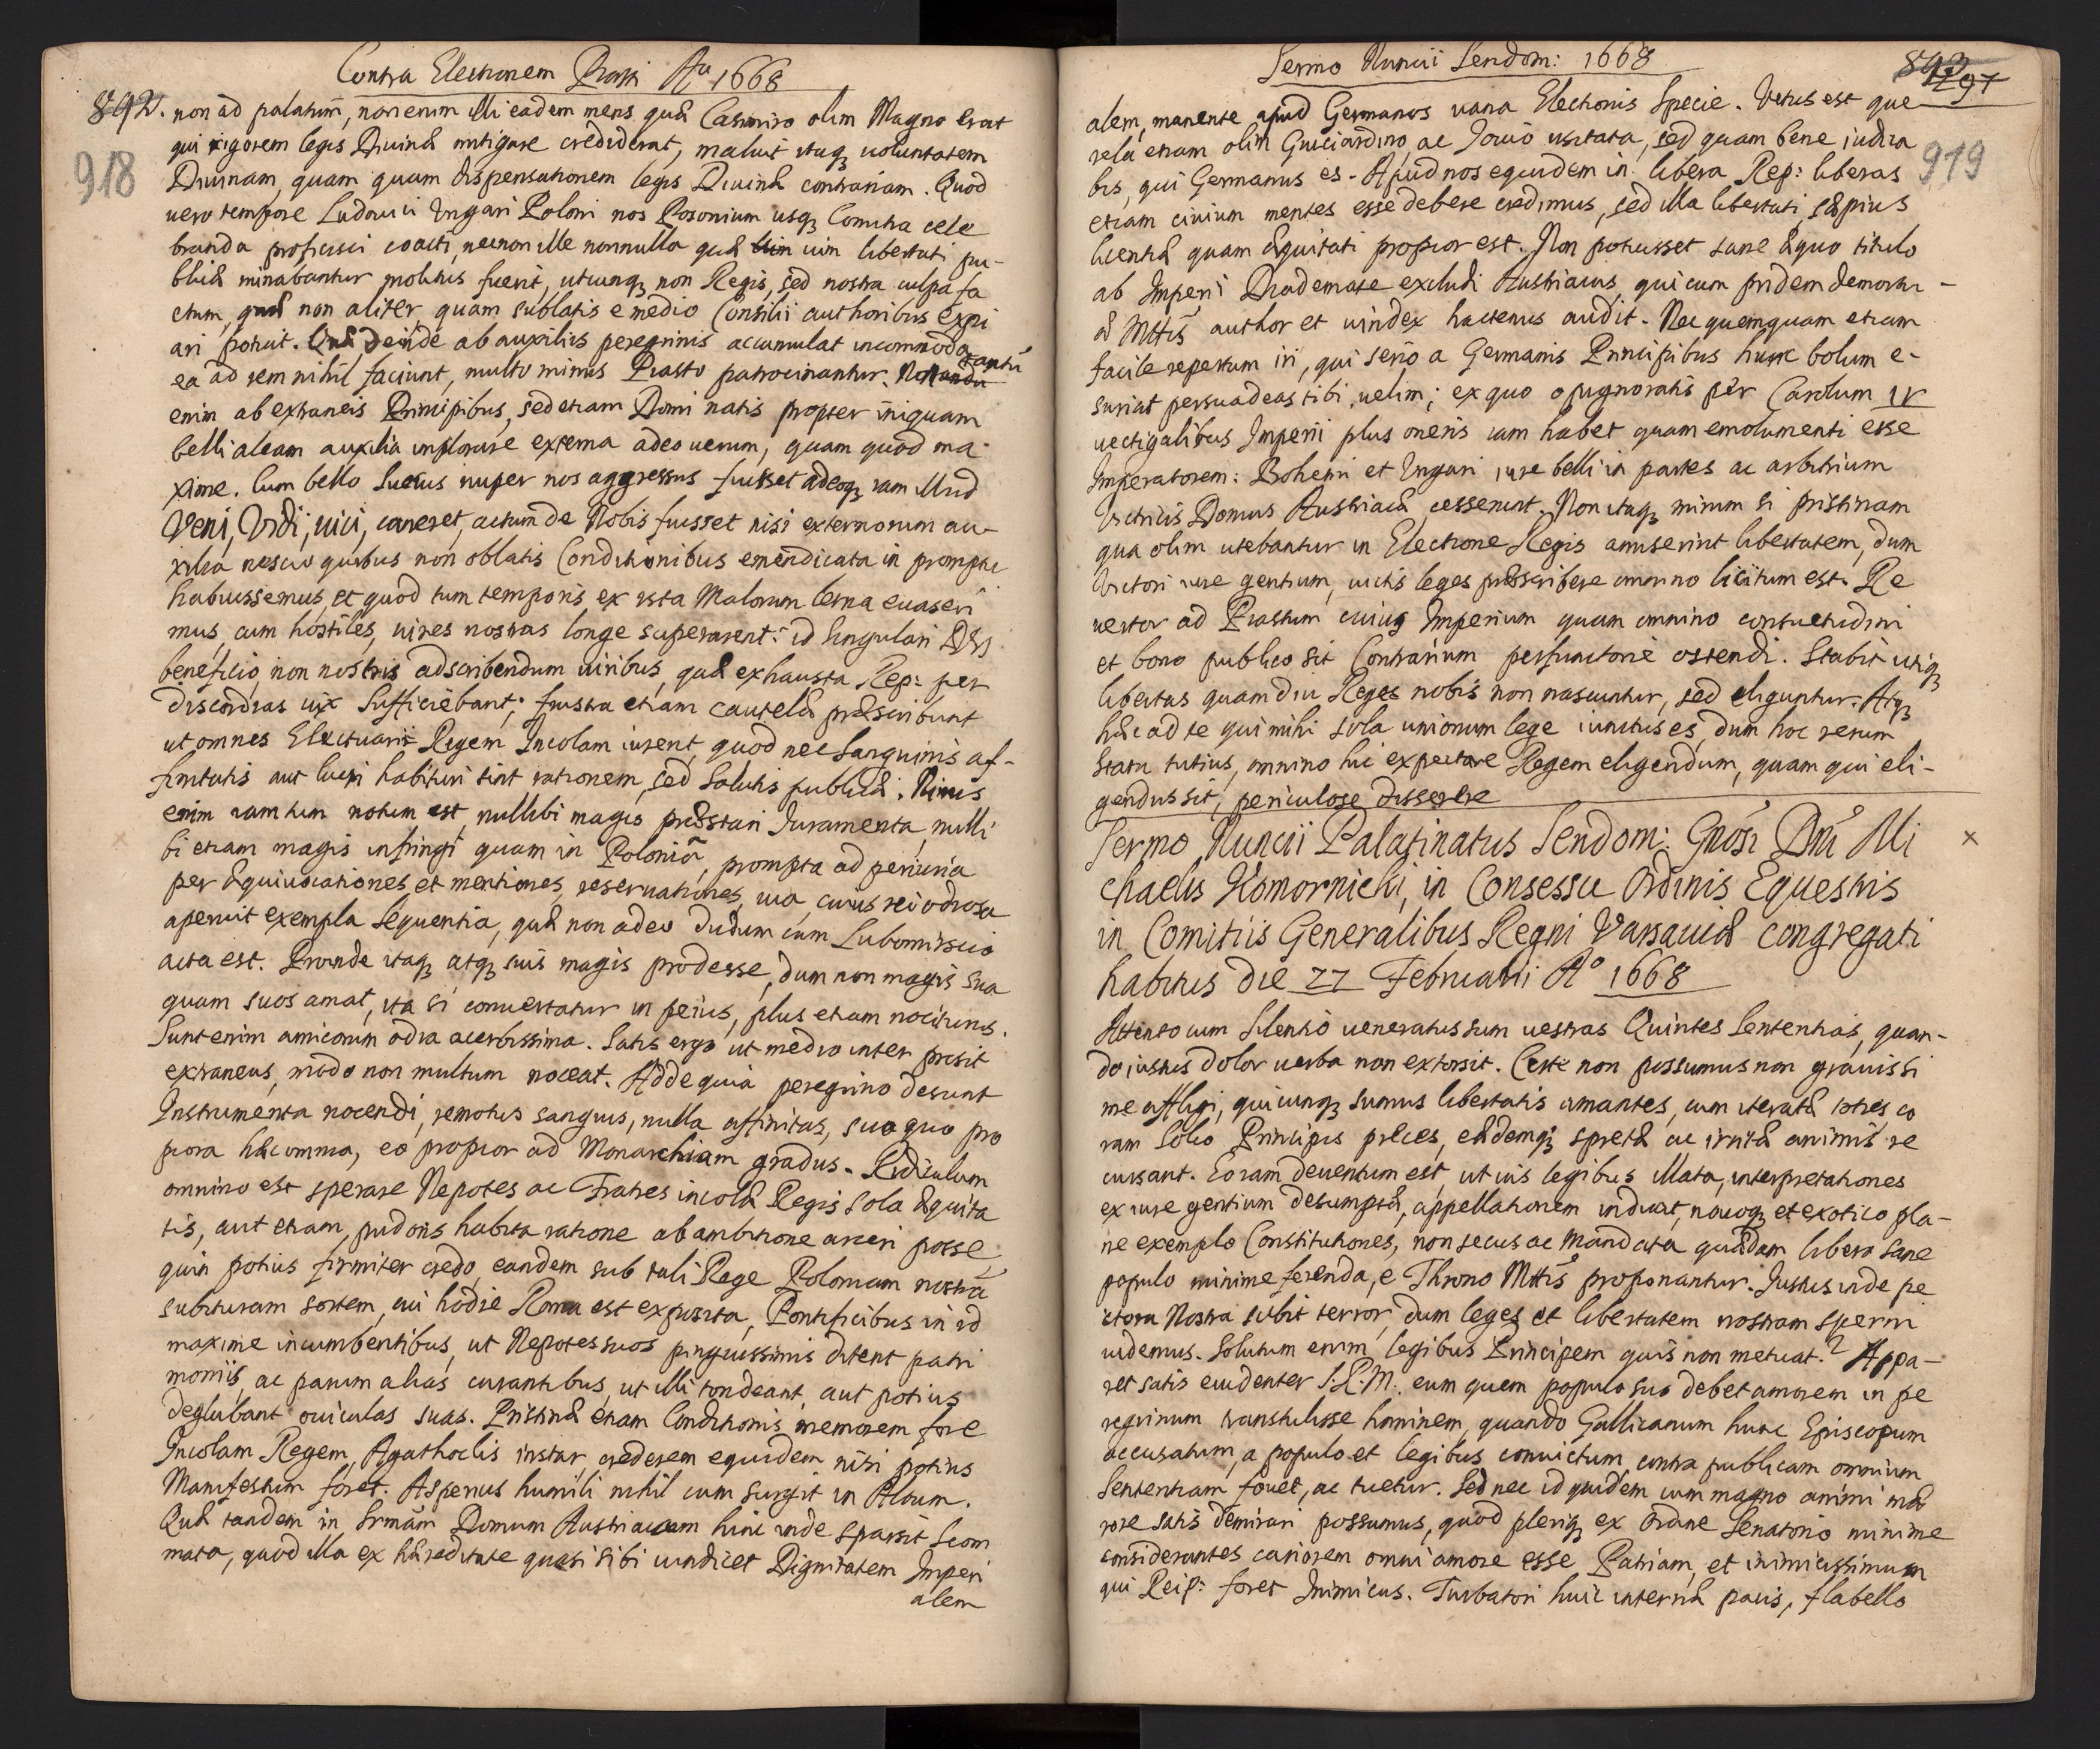 Contra Electionem Piasti Aº 1668
892. non ad palatum, non enim illi eadem mens quæ Casimiro olim Magno erat
918
qui rigorem legis Divinæ mitigare crediderat, maluit itaq; uoluntatem
Diuinam, quam quam dispensationem legis Diuinæ contrariam. Quod
uero tempore Ludouici Ungari Poloni nos Posonium usq; Comitia cele
branda proficisci coacti, necnon ille nonnulla quæ uim libertati pu-
blicæ minabantur molitus fuerit, utcunq; non Regis, sed nostra culpa fa
ctum, quæ non aliter quam sublatis e medio Consilii authoribus expi
ari potuit. Quæ deinde ab auxiliis peregrinis accumulat incommoda
ea ad rem nihil faciunt, multo minus Piasto patrocinantur. Non tantũ
enim ab extraneis Principibus, sed etiam Domi natis propter iniquam
belli aleam auxilia implorare externa adeo uerum, quam quod ma-
xime. Cum bello Suecus nuper nos aggressus fuisset adeoq; iam illud
Veni, Vidi, uici, caneret, actum de Nobis fuisset nisi externorum au-
xilia nescio quibus non oblatis Conditionibus emendicata in promptu
habuissemus, et quod tum temporis ex ista Malorum lerna euaseri
mus, cum hostiles, uires nostras longe superarent: id singulari DEI
beneficio, non nostris adscribendum uiribus, quæ exhausta Rep: per
discordias uix sufficiebant; frustra etiam cautelæ præscribunt
ut omnes Electuari Regem Incolam iurent, quod nec Sanguinis af-
finitatis aut lucri habituri sint rationem, sed Salutis publicæ. Nimis
enim iam tum notum est, nullibi magis præstari Iuramenta, nulli
bi etiam magis infringi quam in Poloniã, prompta ad periuria
per æquiuocationes et mentiones reseruationes, uia, cuius rei odiosa
aperuit exempla sequentia, quæ non adeo dudum cum Lubomirscio
acta est. Proinde itaq; atq; suis magis prodesse, dum non magis sua
quam suos amat, ita si conuertatur in peius, plus etiam nociturus.
Sunt enim amicorum odia acerbissima. Satis ergo ut medio inter prosit
extraneus, modo non multum noceat. Adde quia peregrino desunt
Instrumenta nocendi, remotus sanguis, nulla affinitas, suo quo pro
piora hæc omnia, eo propior ad Monarchiam gradus. Ridiculum
omnino est sperare Nepotes ac Fratres incolæ Regis sola æquita
tis, aut etiam pudoris habita ratione ab ambitione arceri posse,
quin potius firmiter credo, eandem sub tali Rege Poloniam nostrã
subituram sortem, cui hodie Roma est exposita, Pontificibus in id
maxime incumbentibus, ut Nepotes suos pinguissimis ditent patri
moniis, ac parum alias curantibus, ut illi tondeant, aut potius
deglubant ouiculas suas. Pristinæ etiam Conditionis memorem fore
Incolam Regem, Agathoclis instar, crederem equidem nisi potius
Manifestum foret. Asperius humili nihil cum surgit in Altum.
Quæ tandem in Srmãm Domum Austriacam hinc inde sparsit Scom
mata, quod illa ex hæreditate quasi sibi uindicet Dignitatem Imperi
alem
Sermo Nuncii Sendom: 1668
893 1297
919
alem, manente apud Germanos uana Electionis Specie. Vetus est que
rela etiam olim Guiciardino, ac Jouio usitata, sed quam bene iudica
bis, qui Germanus es. Apud nos equidem in libera Rep: liberas
etiam ciuium mentes esse debere credimus, sed illa libertati sæpius
licentiæ quam æquitati propior est. Non potuisset sane æquo titulo
ab Imperii Diademate excludi Austriacus, qui cum pridem demortu-
æ Mttis author et uindex hactenus audit. Nec quemquam etiam
facile repertum iri, qui serio a Germanis Principibus hunc bolum e-
suriat persuadeas tibi, uelim; ex quo opugnoratis per Carolum IV
uectigalibus Imperii plus oneris iam habet quam emolumenti esse
Imperatorem: Bohemi et Ungari iure belli in partes ac arbitrium
Victricis Domus Austriacæ cesserunt. Non itaq; mirum si pristinam
qua olim utebantur in Electione Regis amiserint libertatem, dum
Victori iure gentium, uictis leges præscribere omnino licitum est. Re
uertor ad Piastum cuius Imperium quam omnino consuetudini
et bono publico sit Contrarium perfunctorie ostendi. Stabit utiq;
libertas quam diu Reges nobis non nascuntur, sed eliguntur. Atq;
hæc ad te qui mihi sola unionum lege iunctus es, dum hoc rerum
statu tutius, omnino hic expectare Regem eligendum, quam qui eli-
gendus sit, periculose disserere
Sermo Nuncii Palatinatus Sendom: Gnosi Dni Mi
chaelis Komornicki, in Consessu Ordinis Equestris
in Comitiis Generalibus Regni Varsauiæ congregati
habitus die 27 Februarii Aº 1668
Attento cum Silentio ueneratus sum uestras Quirites Sententias, quan-
do iustus dolor uerba non extorsit. Certe non possumus non grauissi
me affligi, quicunq; sumus libertatis amantes, cum iteratæ toties co
ram Solio Principis preces, eædemq; spretæ ac irritæ animis re
cursant. Eo iam deuentum est, ut uis legibus illata, interpretationes
ex iure gentium desumptæ, appellationem induat, nouoq; et exotico pla-
ne exemplo Constitutiones, non secus ac Mandata quædam libero sane
populo minime ferenda, e Throno Mttis proponantur. Iustus inde pe
ctora Nostra subit terror, dum leges et libertatem nostram sperni
uidemus. Solutum enim legibus Principem quis non metuat? Appa-
ret satis euidenter S:R:M: eum quem populo suo debet amorem in pe
regrinum transtulisse hominem, quando Gallicanum hunc Episcopum
accusatum, a populo et legibus conuictum, contra publicam omnium
Sententiam fouet, ac tuetur. Sed nec id quidem cum magno animi mæ
rore satis demirari possumus, quod pleriq; ex Ordine Senatorio minime
considerantes cariorem omni amore esse Patriam, et inimicissimum
qui Reip: foret Inimicus. Turbatori huic internæ pacis, flabello